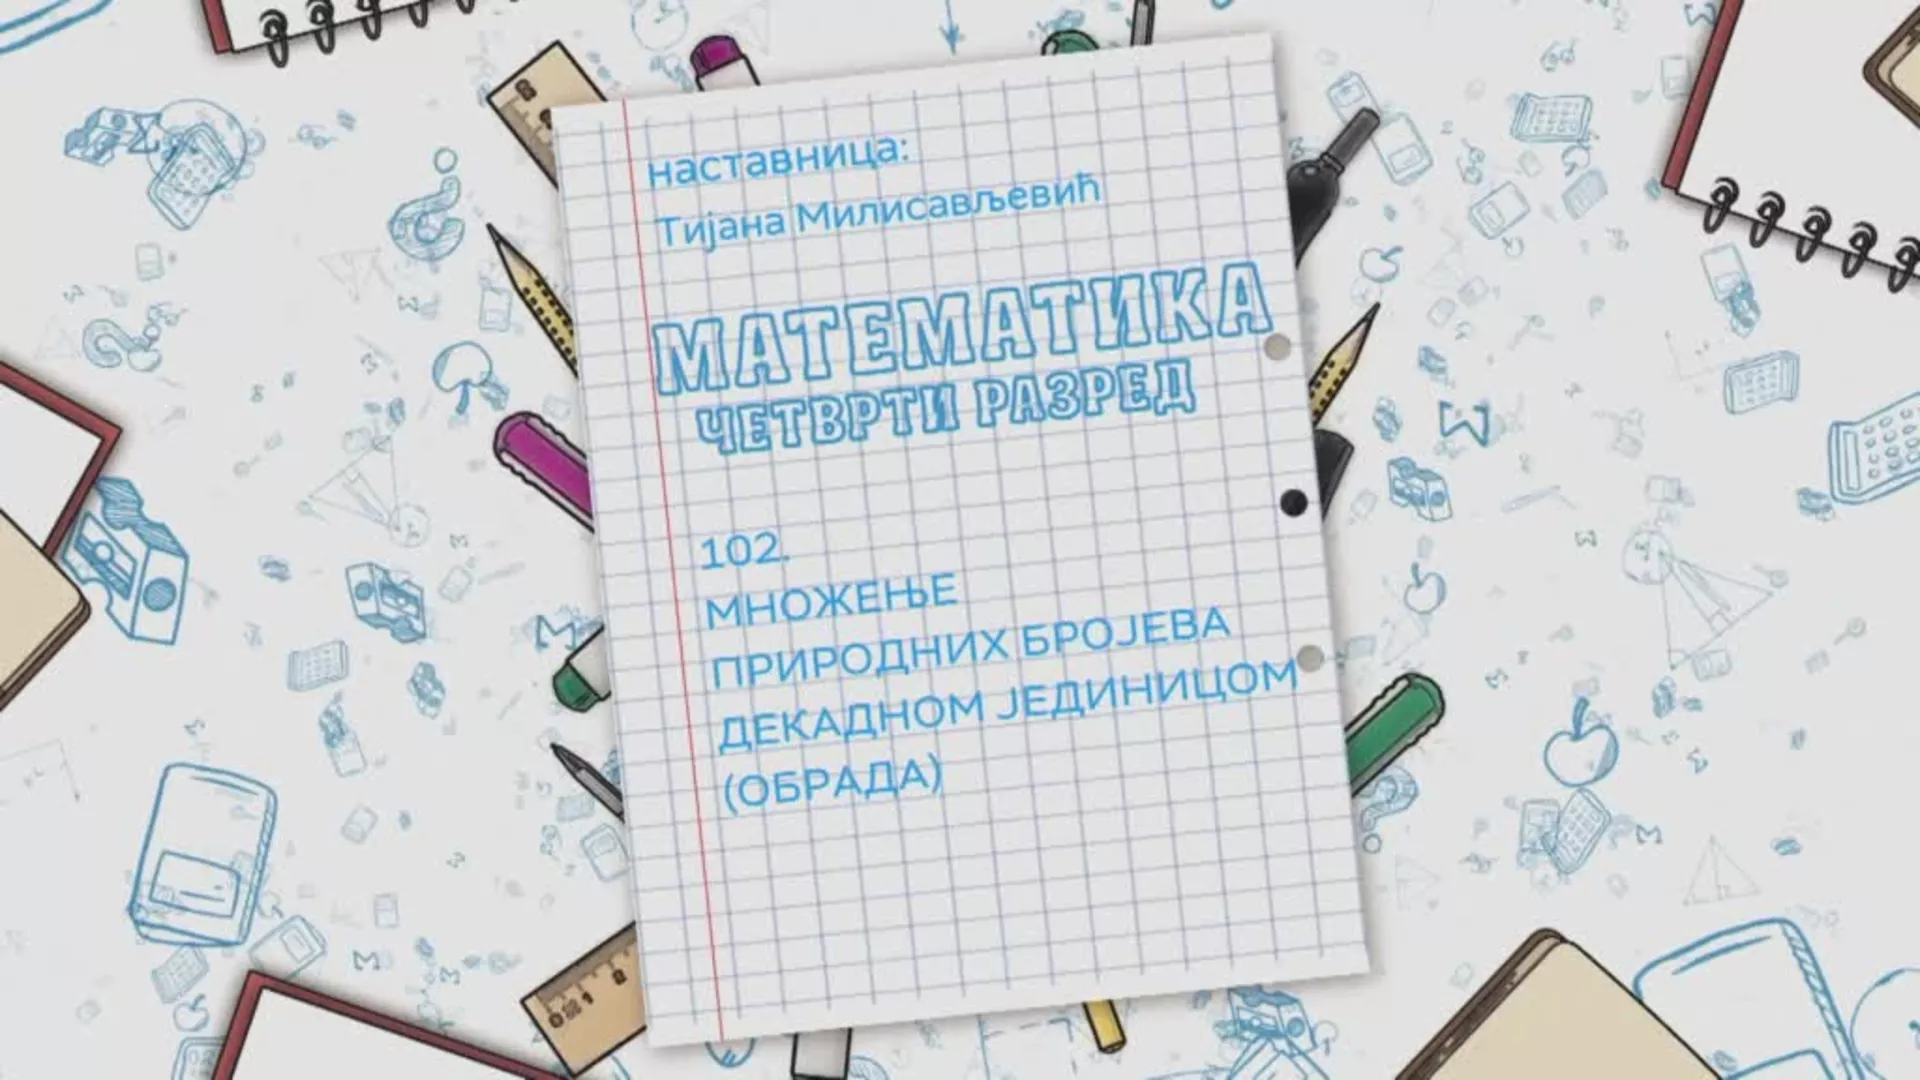 наставница:
Тијана Милисављевић
МАТЕМАТИКА
ЧЕТВРТИ РАЗРЕД
102.
МНОЖЕЊЕ
ПРИРОДНИХ БРОЈЕВА
ДЕКАДНОМ ЈЕДИНИЦОМ
(ОБРАДА)